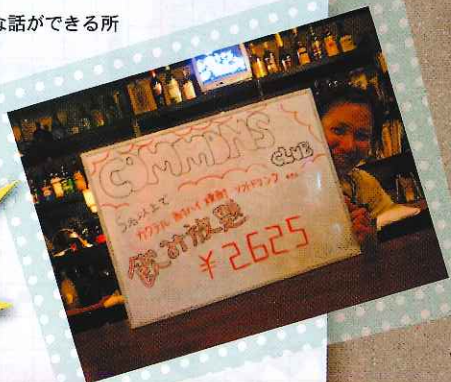 な話ができる所
COMMONS
CLUB
2名以上で
カクテル 酎ハイ 焼酎 ソフトドリンク etc
飲み放題
¥2625